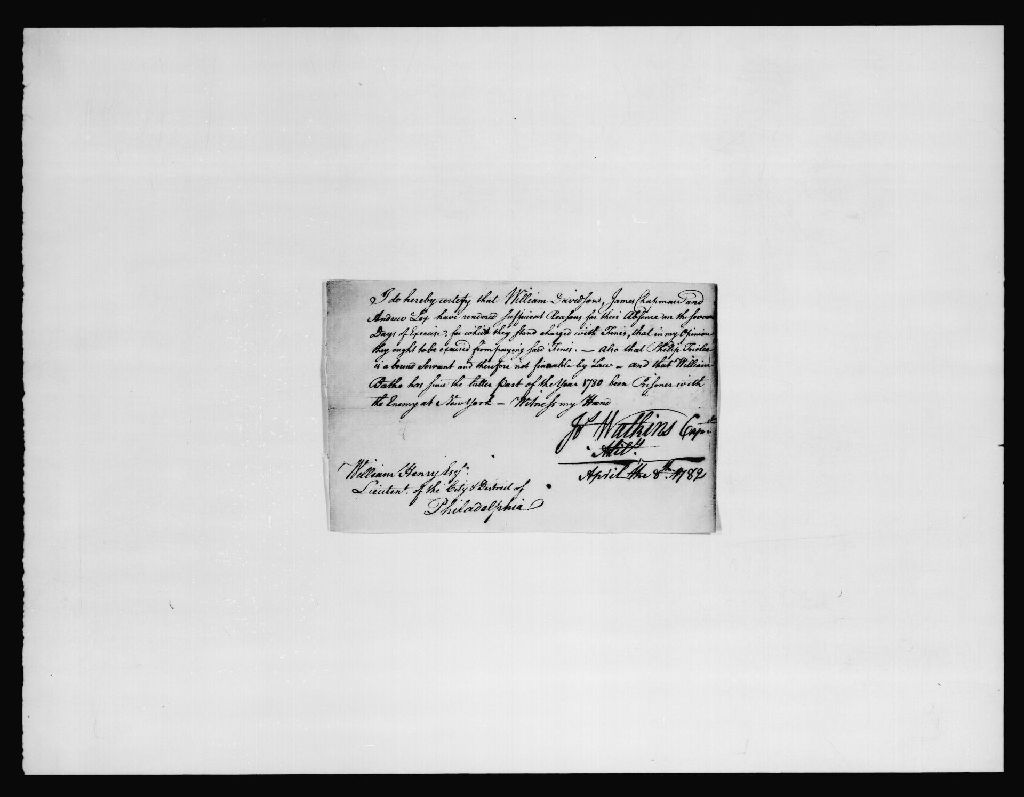 I do hereby certify that William Davidsons, James Chapman and
Andrew Loy have rendred sufficient Reasons for their Absence on the
Days of Exercise, for which they stand charged with Fines, that in my Opinion
they ought to be excused from paying said Fines. – Also that Phillip
is a bound Servant and therefore not fineable by Law – and that William
Bathe has since the latter part of the Year 1780 been Prisoner with
the Enemy at New York – Witness my Hand
Js. Watkins Capn.
April the 8th. 1782
William Henry Esqr.
Lieutent. of the City & District of
Philadelphia